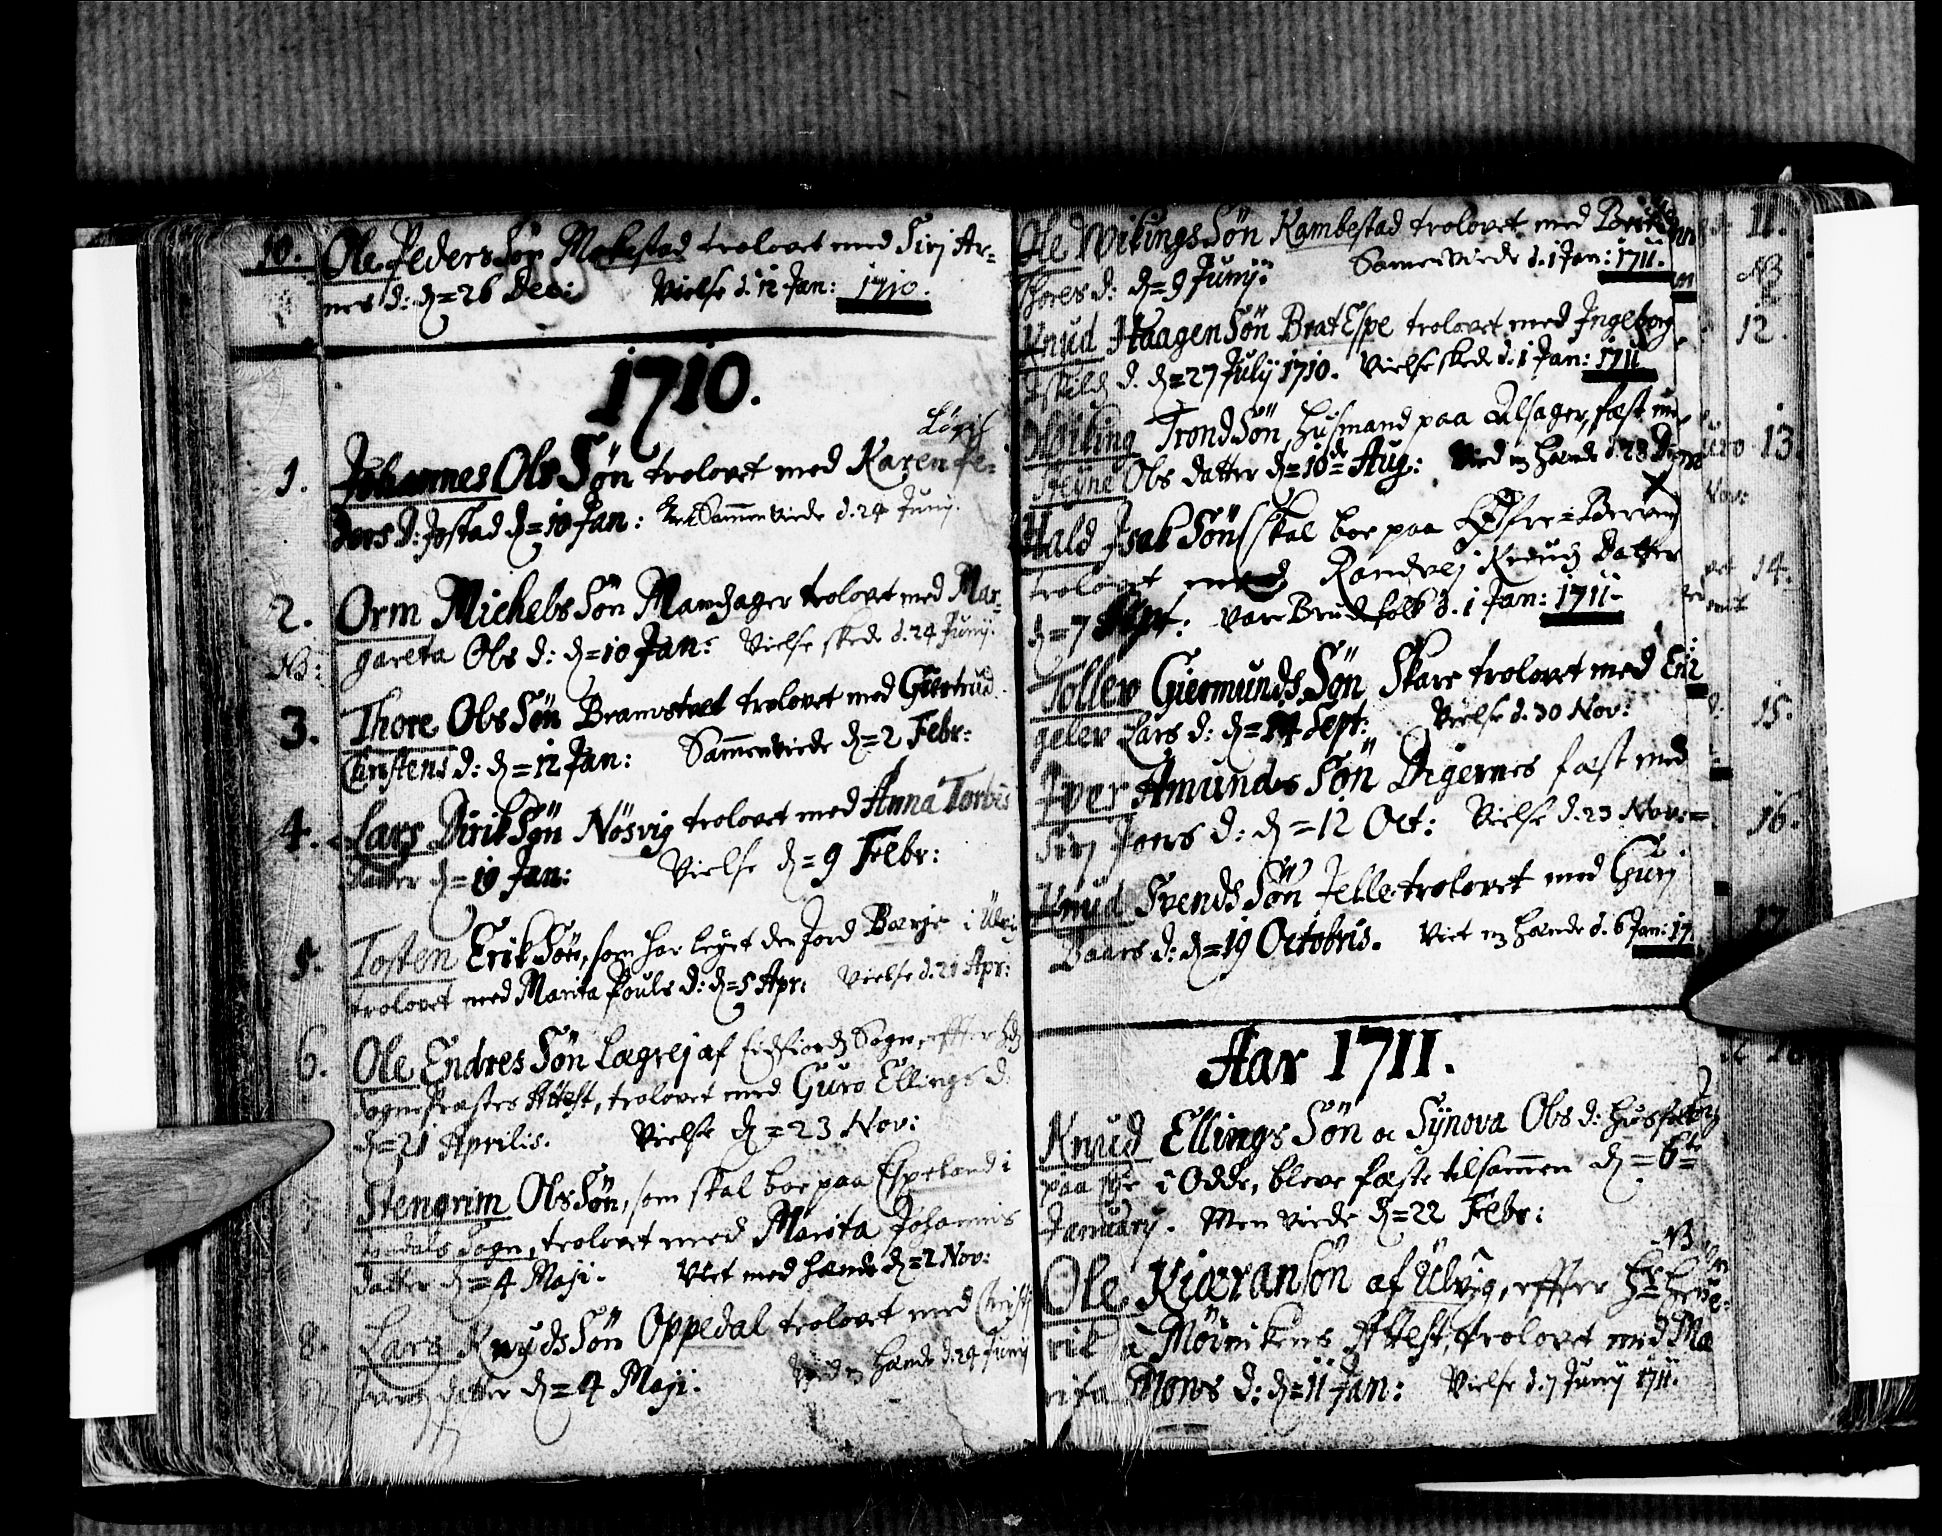 10. Ole PedersSøn Mokestad trolovet med Sirj Ar-
nes d: d=26 Dec: Vielse d. 12 Jan: 1710.
1710.
1. Johannes OlsSøn trolovet med Karen Pe-
ders d: Jostad d=10 Jan: Sammenviede d. 24 Junij.
2. Orm MichelsSøn Mandager trolovet med Mar-
NB: gareta Ols d: d=10 Jan: Vielse skede d. 24 Junij.
3. Thore OlsSøn Bramstvet trolovet med Giertrud
Christens d: d=12 Jan: Sammenviede d=2 Febr:
4. Lars DirikSøn Nösvig trolovet med Anna Torbiis
datter d=19 Jan: Vielse d=9 Febr:
5. Tosten ErikSøn, som har leyet den Jord Bærje i Ulvig
trolovet med Marita Pouls d: d=5 Apr: Vielse d. 21 Apr:
6. Ole EndresSøn Lægrej af Eidfiord Sogn, effter
SognePræstes Attest, trolovet med Guro Ellings d.
d=21 Aprilis. Vielse d=23 Nov:
7. Stengrim OlsSøn, som skal boe paa Espeland i
Sogn, trolovet med Marita Johannis
datter d=4 Maji. Viet med hænde d=2 Nov:
8. Lars KnudsSøn Oppedal trolovet med
datter d=4 Maji. hænde d. 24 Junij
Ole WikingsSøn Kambestad trolovet med 11.
Thores d: d=9 Junij. Sammenviede d. 1 Jan: 1711. NB
Knud HaagenSøn BratEspe trolovet med Ingeborg 12.
d. d=27 Julij 1710. Vielse skede d. 1 Jan: 1711
Wiking TrondSøn, huusmand paa Alsager, fæst 13.
Ols datter d=10de Aug: hænde d. 28 Nov:
Hald IsakSøn (skal boe paa
trolovet med Randvej Knuds datter 14.
d=7 Sept: vare Brudfolk d. 1 Jan: 1711.
Tollev GiermundsSøn Skare trolovet med En-
gelev Lars d: d=14 Sept: Vielse d. 30 Nov: 15.
Iver AmundesSøn Digernes fæst med
Sirj Jons d: d=12 Oct: Vielse d. 23 Nov: 16.
Knud SvendsSøn Jelle trolovet med Gurj
Baars d: d=19 Octobris. Viet m hænde d. 6 Jan: 17 17.
Aar 1711.
Knud EllingsSøn oc Synova Ols d: huusfolk
paa i Odde, bleve fæste tilsammen d=6te
Januarij. Men viede d=22 Febr:
NB
Ole KiæranSøn af Ulvig, effter Hr Hen-
rik à Møinikens Attest, trolovet med Ma-
rita Mons d: d=11 Jan: Vielse d. 7 Junij 1711.